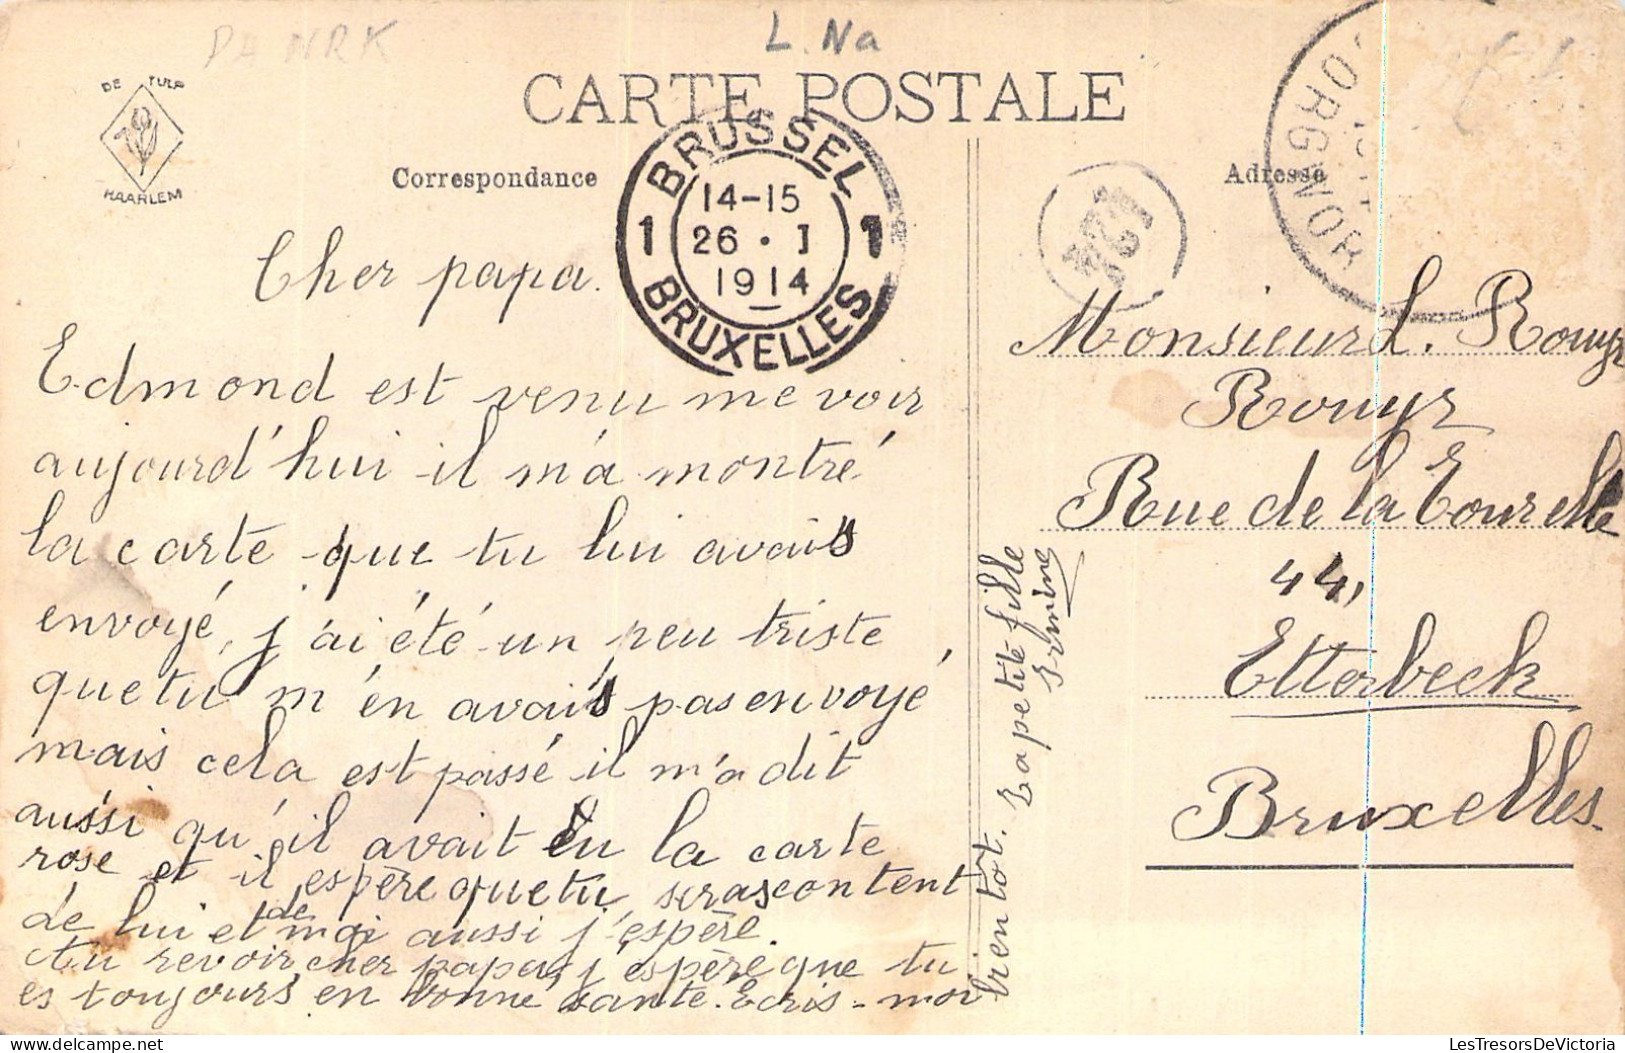 DA NRK
L. Na
DE TULP
HAARLEM
CARTE POSTALE
Correspondance
Adresse
BRUSSEL
14-15
1 26 · I 1
1914
BRUXELLES
Cher papa.
Edmond est venu me voir
aujourd'hui il m'a montré
la carte que tu lui avais
envoyé, j'ai été un peu triste
que tu m'en avais pas envoyé,
mais cela est passé il m'a dit
aussi qu'il avait eu la carte
rose et il espère que tu seras content
de lui et de moi aussi j'espère.
Au revoir cher papa, j'espère que tu
es toujours en bonne santé. Ecris-moi
bientôt. La petite fille
Irmine
Monsieur L. Rouyr
Rouyr
Rue de la Tourelle
44,
Etterbeek
Bruxelles.
LesTresorsDeVictoria
delcampe.net